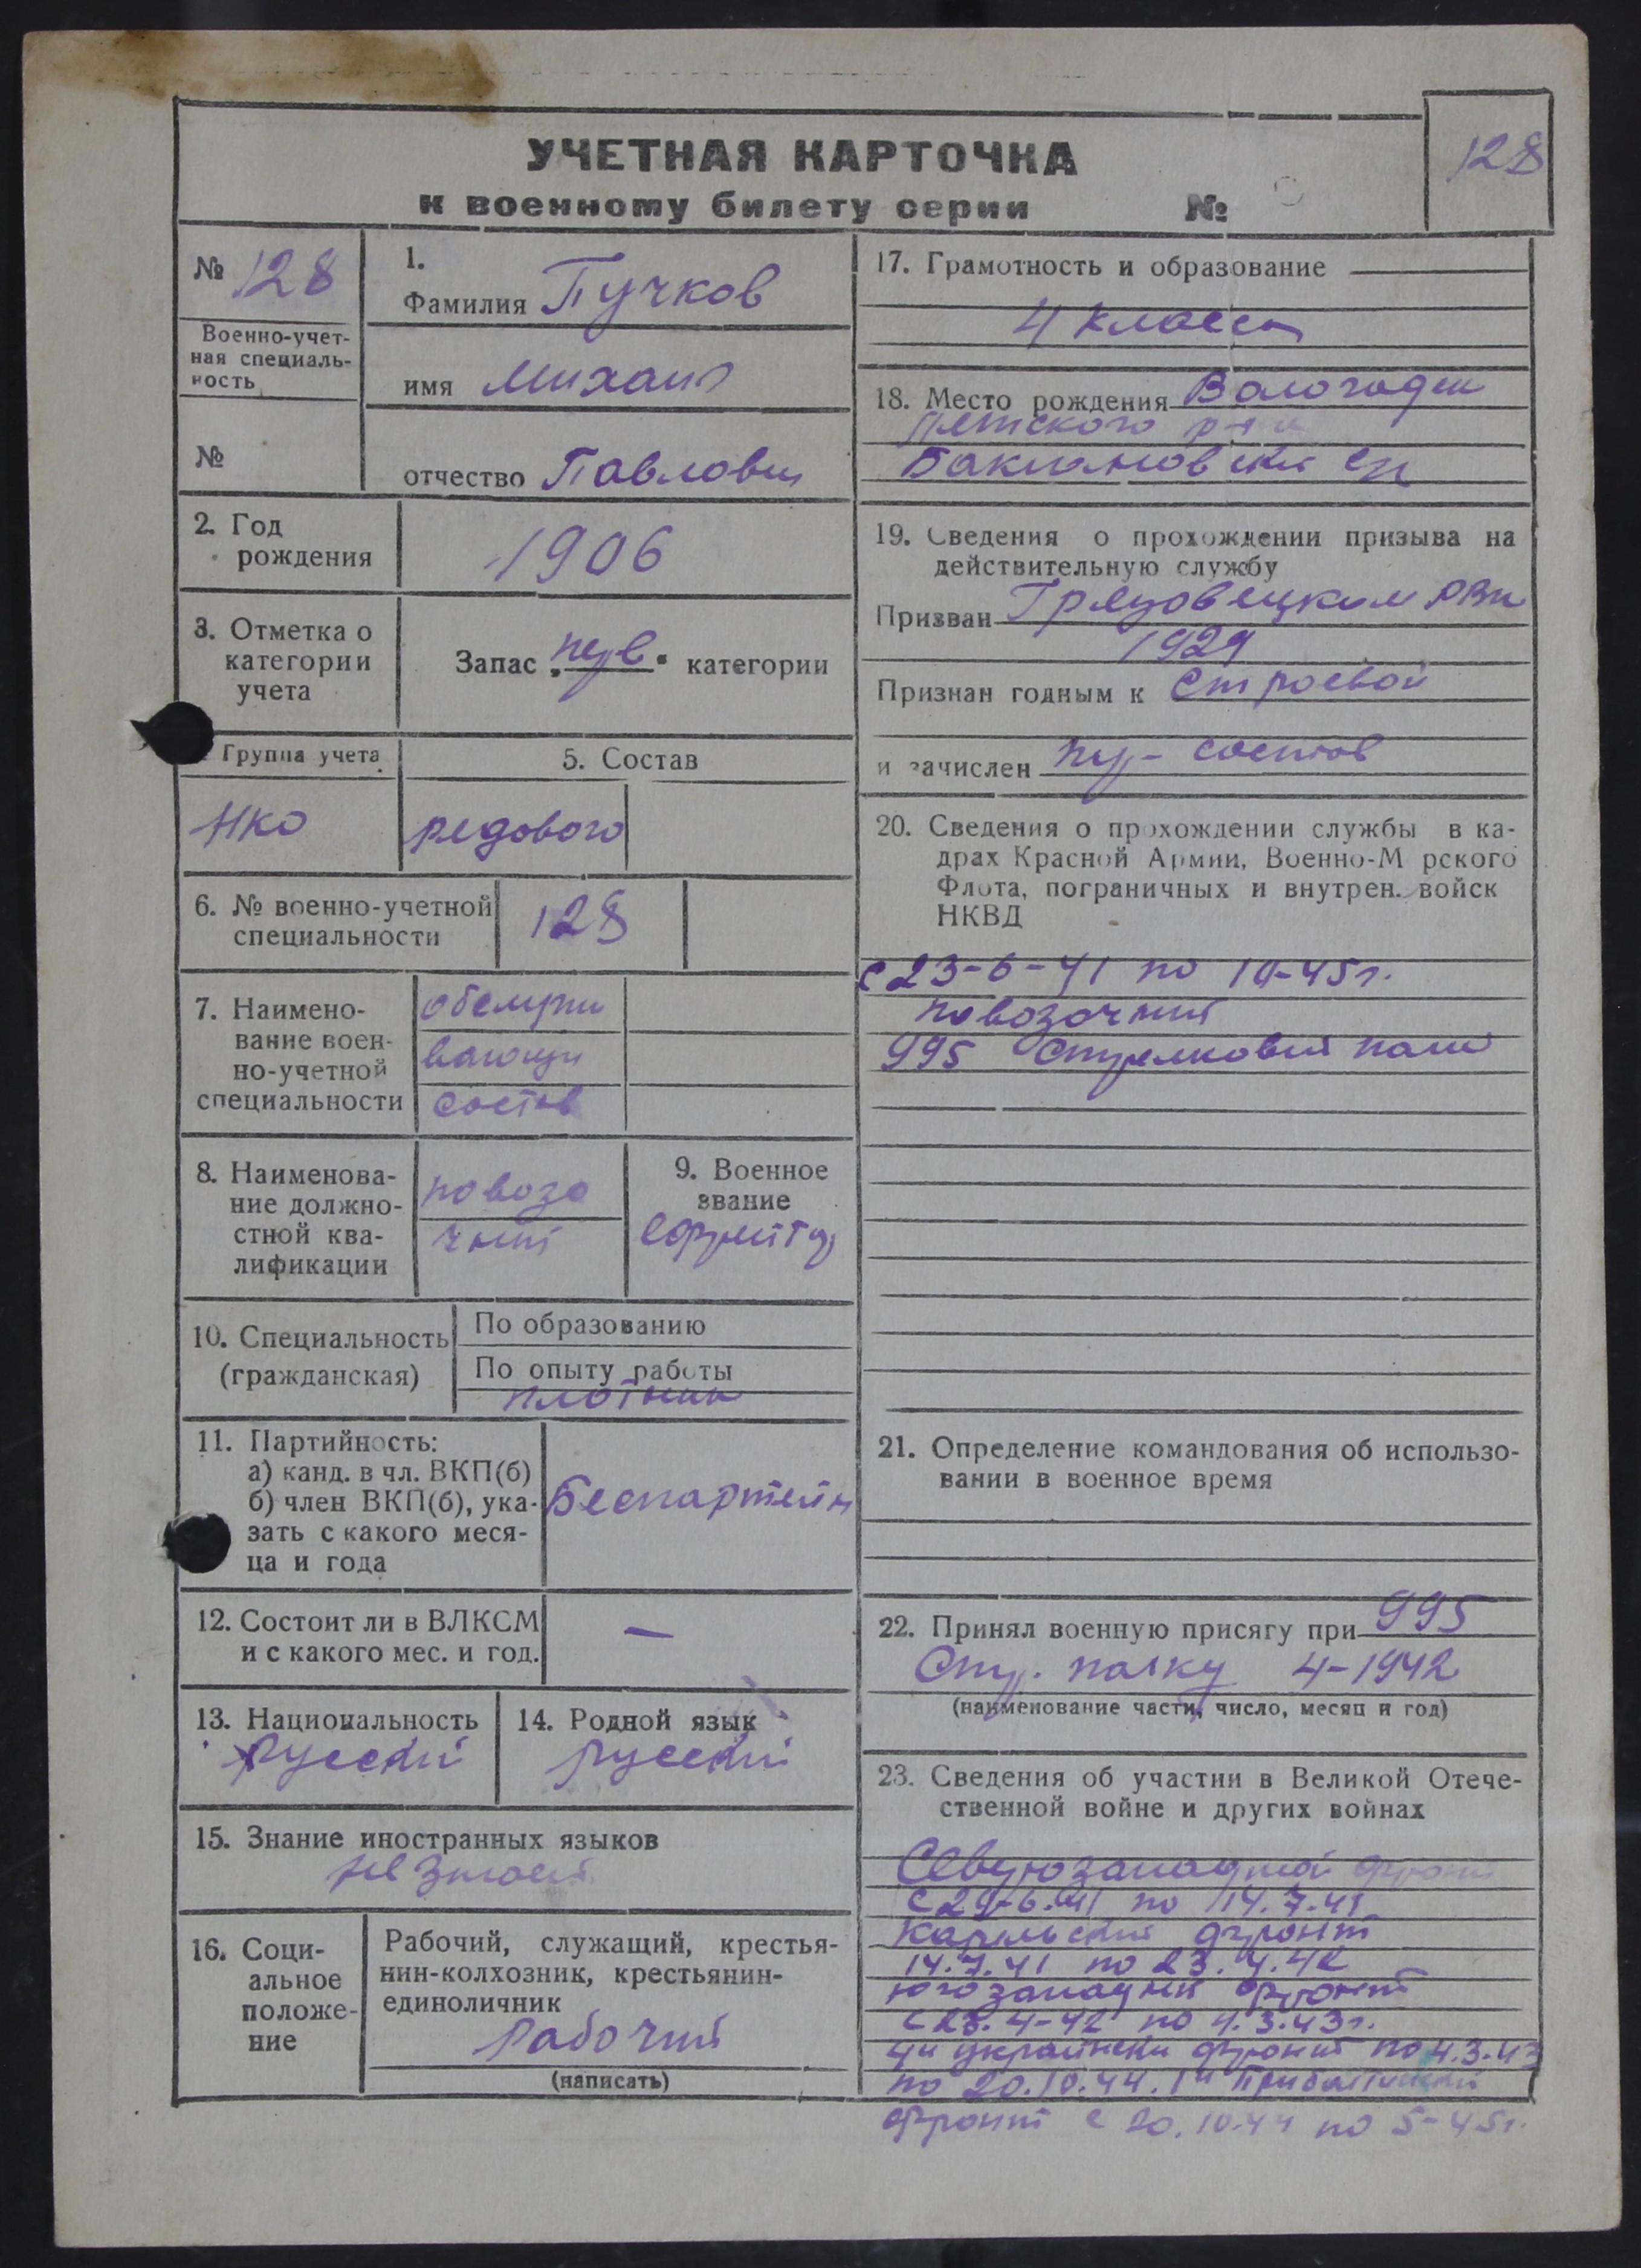 УЧЕТНАЯ КАРТОЧКА
к военному билету серии №
128
№ 128
Военно-учет-
ная специаль-
ность
№
1.
Фамилия Пучков
имя Михаил
отчество Павлович
2. Год
рождения
1906
3. Отметка о
категории
учета
Запас „перв“ категории
Группа учета
5. Состав
НКО
редового
6. № военно-учетной
специальности
128
7. Наимено-
вание воен-
но-учетной
специальности
состав
8. Наименова-
ние должно-
стной ква-
лификации
повозо
чный
9. Военное
звание
10. Специальность
(гражданская)
По образованию
По опыту работы
плотник
11. Партийность:
а) канд. в чл. ВКП(б)
б) член ВКП(б), ука-
зать с какого меся-
ца и года
Беспартейн
12. Состоит ли в ВЛКСМ
и с какого мес. и год.
—
13. Национальность
русский
14. Родной язык
русский
15. Знание иностранных языков
не знает
16. Соци-
альное
положе-
ние
Рабочий, служащий, крестья-
нин-колхозник, крестьянин-
единоличник
Рабочий
(написать)
17. Грамотность и образование
4 класса
18. Место рождения
р-на
19. Сведения о прохождении призыва на
действительную службу
Призван Грязовецким РВК
1929
Признан годным к строевой
и зачислен состав
20. Сведения о прохождении службы в ка-
драх Красной Армии, Военно-М рского
Флота, пограничных и внутрен. войск
НКВД
с 23-6-41 по 10-45г.
повозочный
995 стрелковый полк
21. Определение командования об использо-
вании в военное время
22. Принял военную присягу при 995
Стр. полку 4-1942
(наименование части, число, месяц и год)
23. Сведения об участии в Великой Отече-
ственной войне и других войнах
фронт
с 29-6-41 по 14.7.41
Карельский фронт
14.7.41 по 23.4.42
югозападный фронт
с 23.4-42 по 4.3.43г.
4й украински фронт по 4.3.43
по 20.10.44. 1й Прибалтийский
фронт с 20.10.44 по 5-45г.